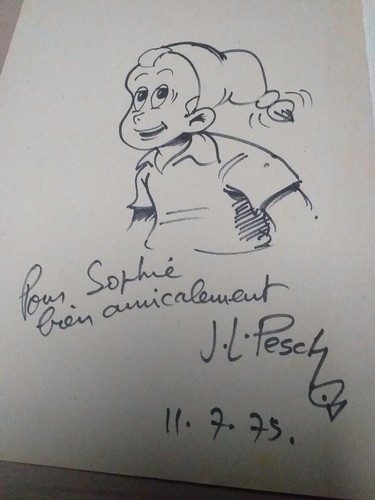 Pour Sophie
bien amicalement
J.L. Pesch
11.7.75.